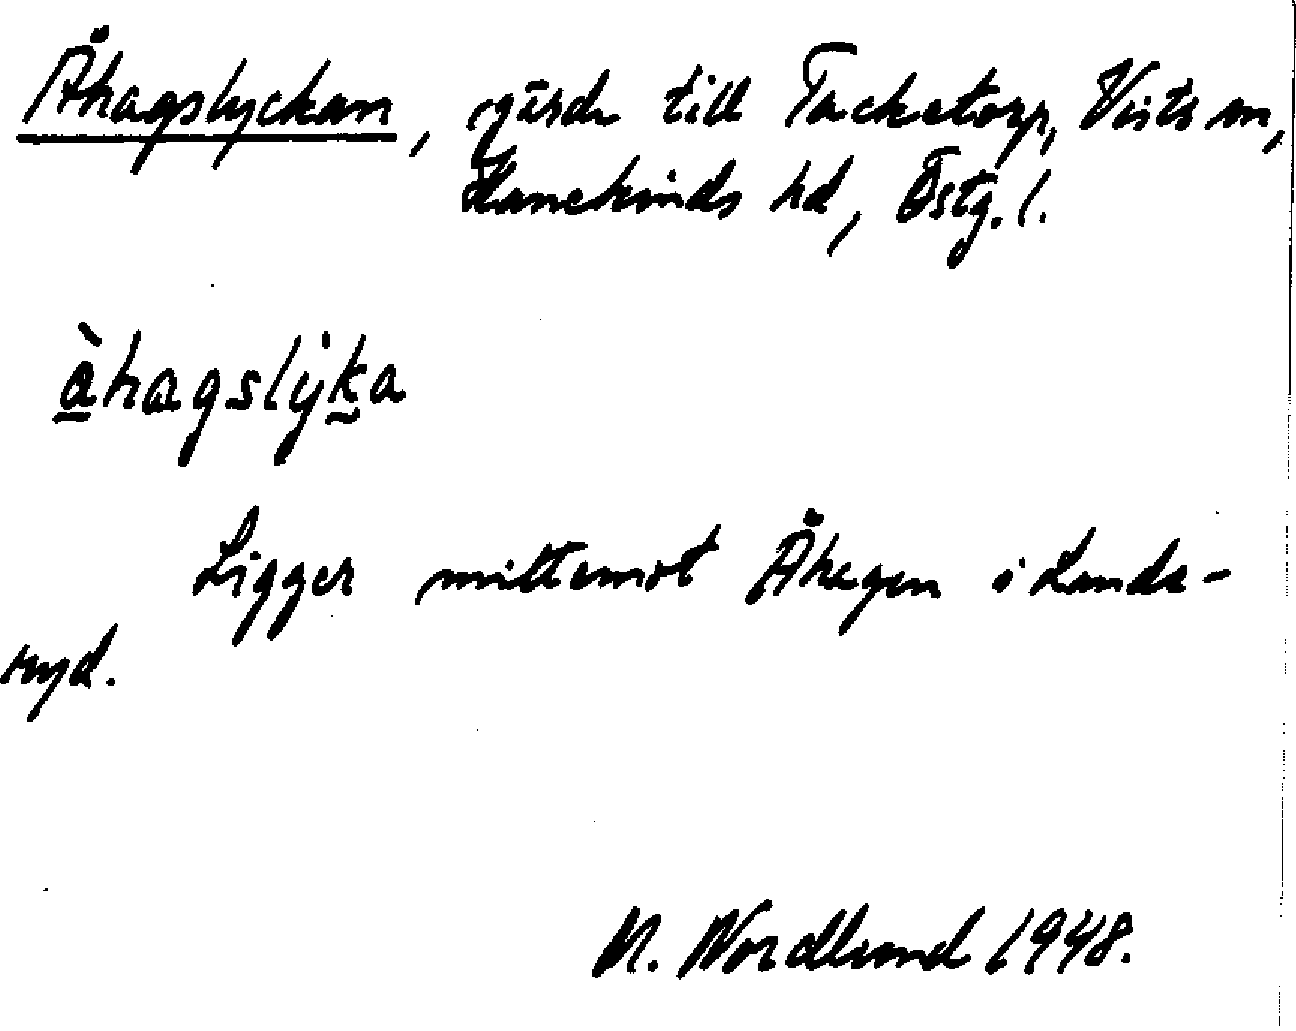 Åhagslyckan, gärde till Tacketorp, Vists sn,
Hanekinds hd, Östg. l.
àhagslẏka
Ligger mittemot Åhagen i Lands-
ryd.
N. Nordlund 1948.